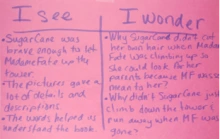 I see
• SugarCane was
brave enough to let
Madame Fate up the
tower.
• The pictures gave a
lot of details and
descriptions
• The words helped us
understand the book.
I wonder
• Why SugarCane didn't cut
her own hair when Madame
Fate was climbing up so
she could look for her
parents because MF was
mean to her?
• Why didn't SugarCane just
climb down the tower &
run away when MF was
gone?